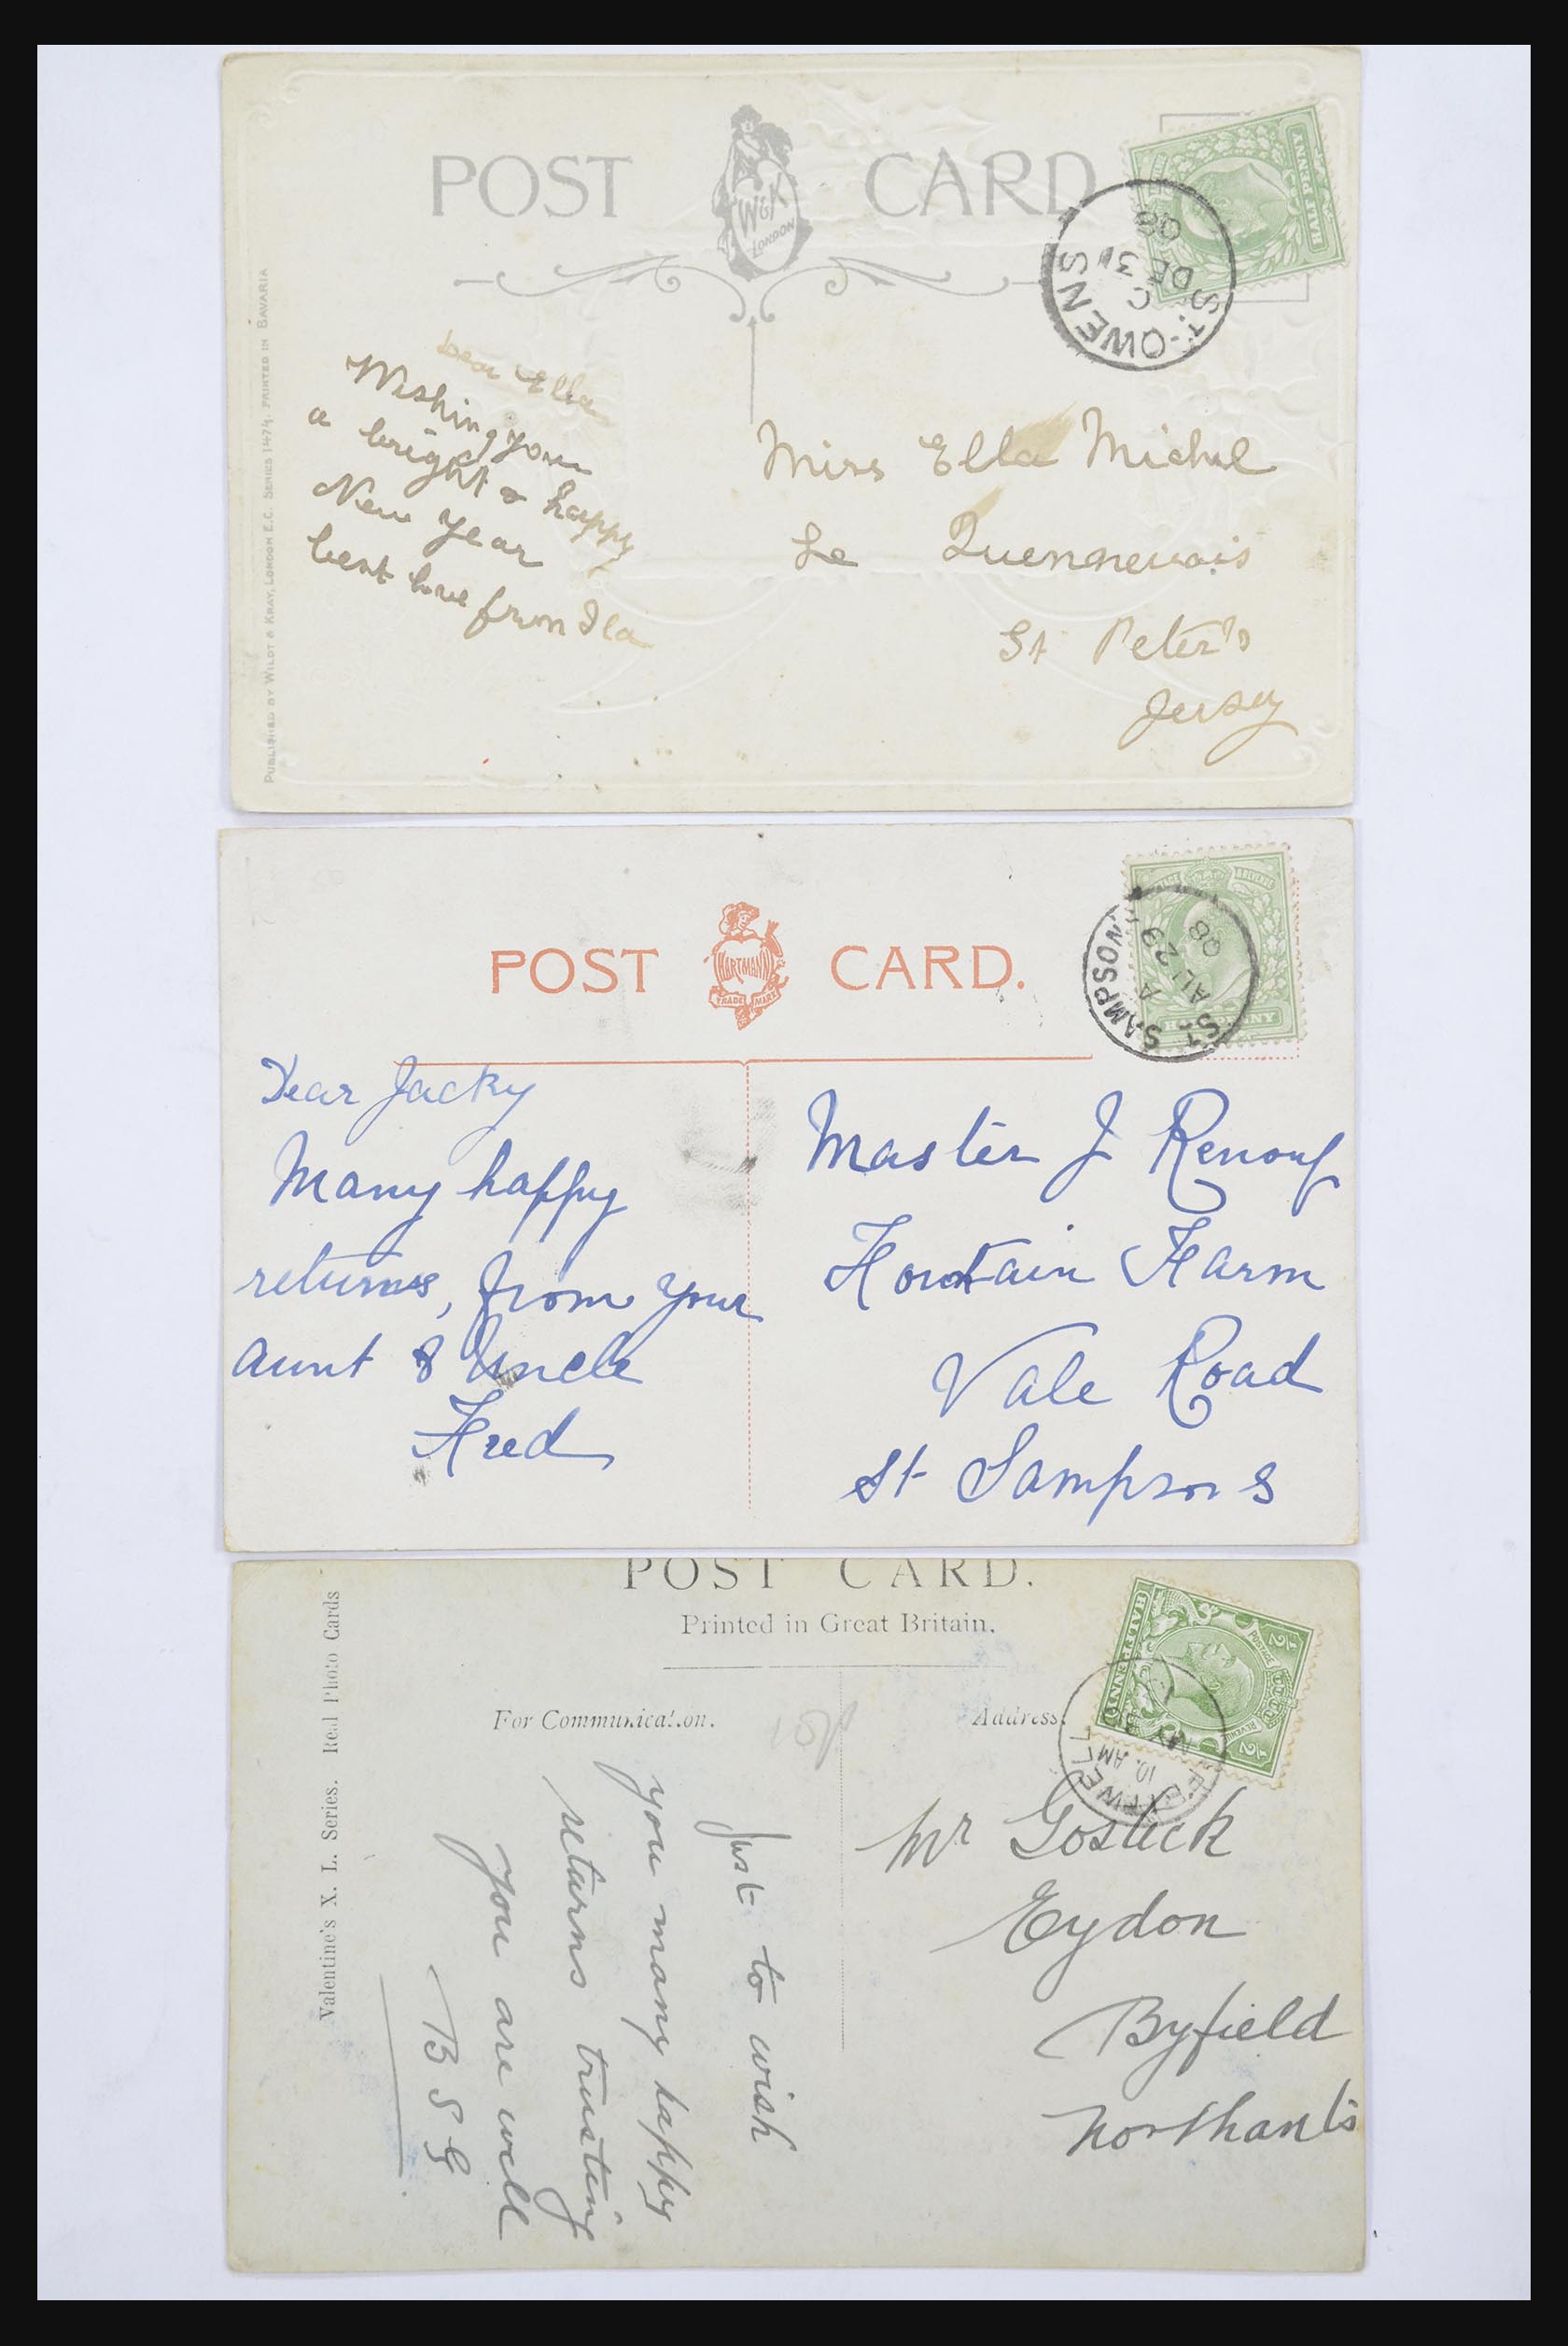 POST CARD
W&K
LONDON
HALF PENNY
ST. OWENS
C
DE 31
08
PUBLISHED BY WILDT & KRAY, LONDON E.C. SERIES 1474. PRINTED IN BAVARIA
Dear Ella
Wishing you
a bright & happy
New Year
best love from Ila
Miss Ella Michel
Le Quennevais
St Peter's
Jersey
POST CARD.
HARTMANN
TRADE MARK
POSTAGE REVENUE
HALFPENNY
ST. SAMPSON
A
AU 23
08
Dear Jacky
Many happy
returns, from your
aunt & Uncle
Fred
Master J Renouf
Fountain Farm
Vale Road
St Sampsons
POST CARD.
Printed in Great Britain.
For Communication.
Address.
Valentine's X. L. Series. Real Photo Cards
HALFPENNY
POSTAGE
REVENUE
1/2
1/2
10. AM
MY
Just to wish
you many happy
returns trusting
you are well
B S G
Mr Goslick
Eydon
Byfield
Northants